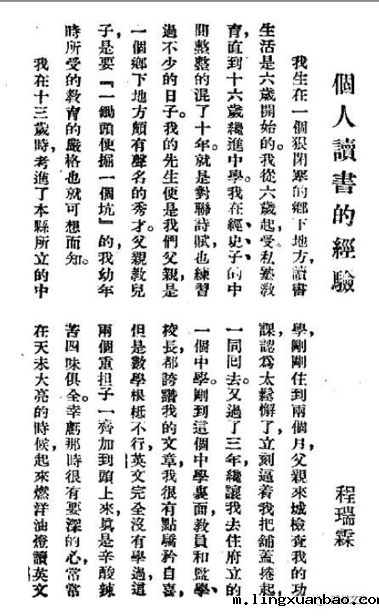 個人讀書的經驗
程瑞霖
我生在一個狠閉塞的鄉下地方，讀書
生活是六歲開始的。我從六歲起受私塾教
育，直到十六歲纔進中學。我在經、史、子的中
間整整的混了十年。就是對聯詩賦，也練習
過不少的日子。我的先生便是我們父親，是
一個鄉下地方頗有聲名的秀才。父親教兒
子，是要『一鋤頭便掘一個坑』的，我幼年
時所受的教育的嚴格也就可想而知。
我在十三歲時，考進了本縣所立的中
學，剛剛住到兩個月，父親來城檢查我的功
課，認爲太鬆懈了，立刻逼着我把鋪蓋捲起，
一同回去。又過了三年，纔讓我去住府立的
一個中學。剛到這個中學裏面，教員和監學、
校長都誇讚我的文章，我很有點驕矜自喜，
但是數學根柢不行，英文完全沒有學過，這
兩個重担子一齊加到頭上來，眞是辛酸辣
苦四味俱全。幸虧那時很有要深的心，常常
在天未大亮的時候，起來燃洋油燈讀英文
m.lingxuanbao.com